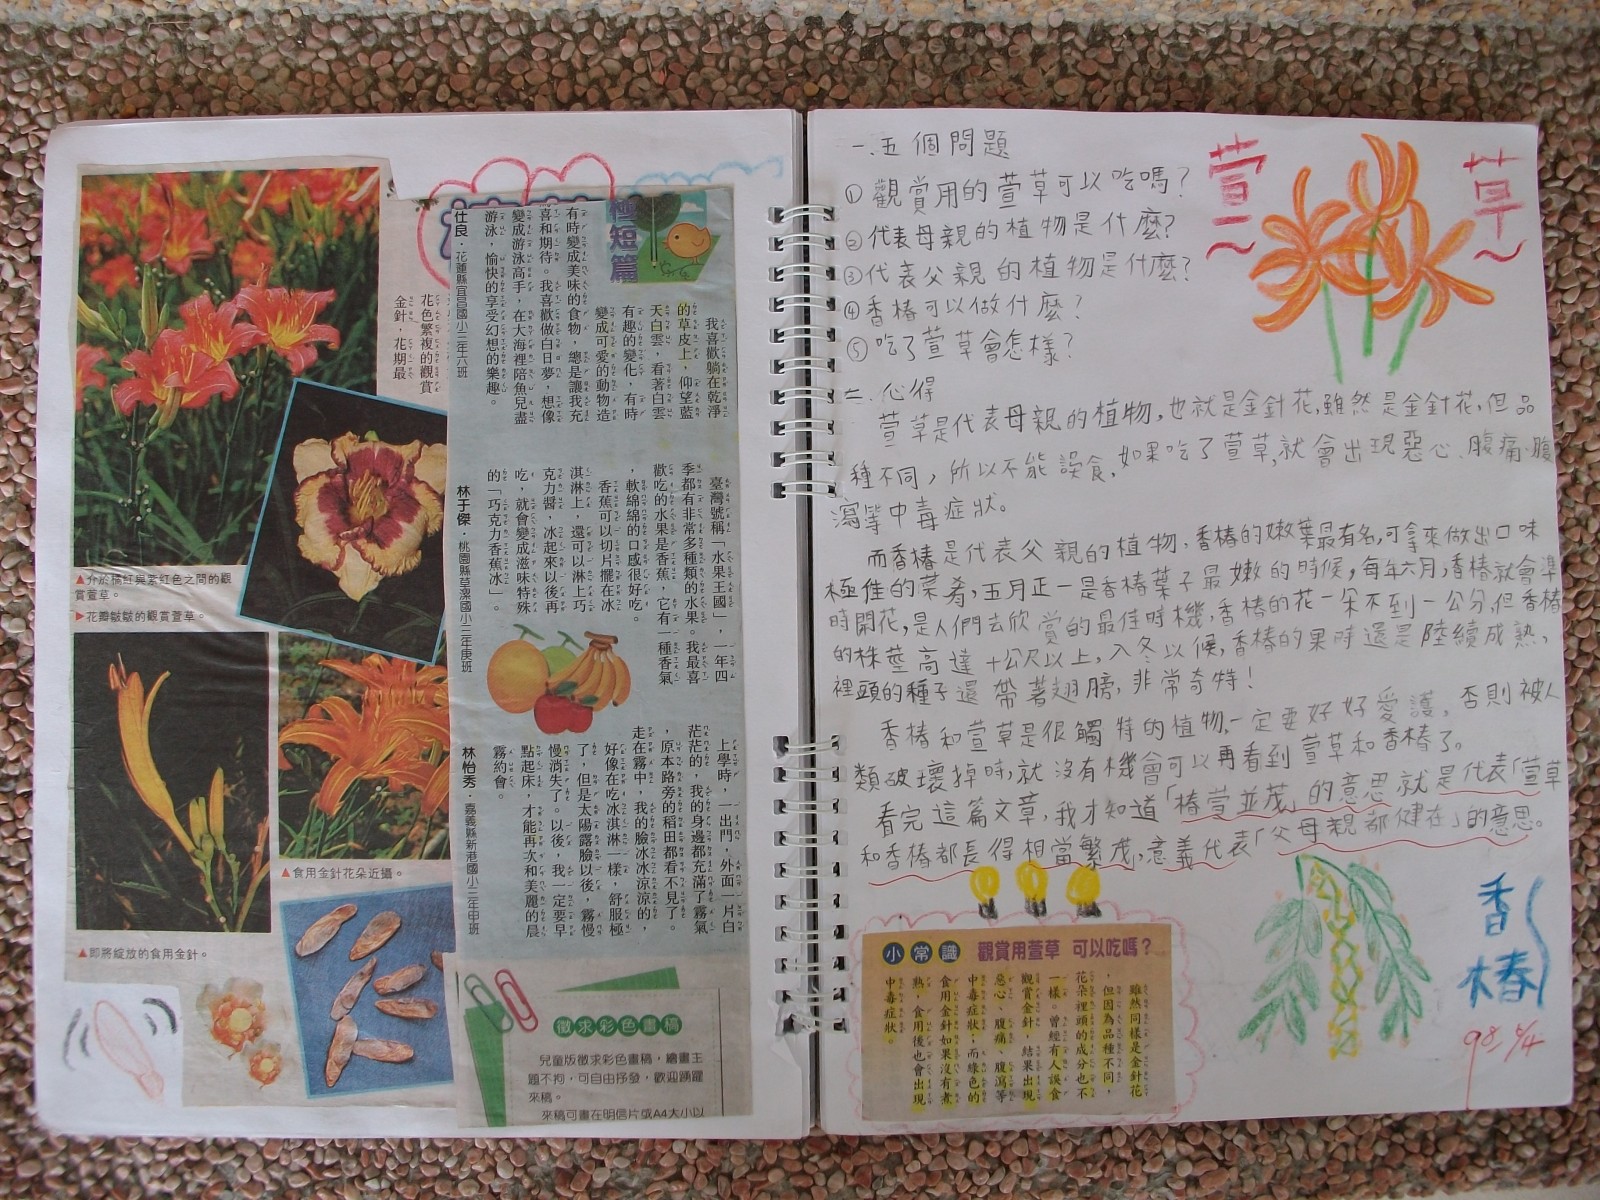 花色繁複的觀賞
金針，花期最
▲介於橘紅與紫紅色之間的觀
賞萱草。
▶花瓣皺皺的觀賞萱草。
▲食用金針花朵近攝。
▲即將綻放的食用金針。
極短篇
我喜歡躺在乾淨
的草皮上，仰望藍
天白雲，看著白雲
有趣的變化，有時
變成可愛的動物造
有時變成美味的食物，總是讓我充
喜和期待。我喜歡做白日夢，想像
變成游泳高手，在大海裡陪魚兒盡
游泳，愉快的享受幻想的樂趣。
仕良．花蓮縣宜昌國小二年六班
臺灣號稱「水果王國」，一年四
季都有非常多種類的水果。我最喜
歡吃的水果是香蕉，它有一種香氣
，軟綿綿的口感很好吃。
香蕉可以切片擺在冰
淇淋上，還可以淋上巧
克力醬，冰起來以後再
吃，就會變成滋味特殊
的「巧克力香蕉冰」。
林于傑．桃園縣草漯國小二年庚班
上學時，一出門，外面一片白
茫茫的，我的身邊都充滿了霧氣
，原本路旁的稻田都看不見了。
走在霧中，我的臉冰冰涼涼的，
好像在吃冰淇淋一樣，舒服極
了，但是太陽露臉以後，霧慢
慢消失了。以後，我一定要早
點起床，才能再次和美麗的晨
霧約會。
林怡秀．嘉義縣新港國小二年甲班
徵求彩色畫稿
兒童版徵求彩色畫稿，繪畫主
題不拘，可自由抒發，歡迎踴躍
來稿。
來稿可畫在明信片或A4大小以
一.五個問題
①觀賞用的萱草可以吃嗎？
②代表母親的植物是什麼？
③代表父親的植物是什麼？
④香椿可以做什麼？
⑤吃了萱草會怎樣？
萱草~
二.心得
萱草是代表母親的植物，也就是金針花，雖然是金針花，但品
種不同，所以不能誤食，如果吃了萱草，就會出現惡心、腹痛、腹
瀉等中毒症狀。
而香椿是代表父親的植物，香椿的嫩葉最有名，可拿來做出口味
極佳的菜肴，五月正一是香椿葉子最嫩的時候，每年六月，香椿就會準
時開花，是人們去欣賞的最佳時機，香椿的花一朵不到一公分，但香椿
的株莖高達十公尺以上，入冬以候，香椿的果時還是陸續成熟，
裡頭的種子還帶著翅膀，非常奇特！
香椿和萱草是很觸特的植物，一定要好好愛護，否則被人
類破壞掉時，就沒有機會可以再看到萱草和香椿了。
看完這篇文章，我才知道「椿萱並茂」的意思就是代表「萱草
和香椿都長得相當繁茂，意義代表「父母親都健在」的意思。
小常識 觀賞用萱草 可以吃嗎？
雖然同樣是金針花
，但因為品種不同，
花朵裡頭的成分也不
一樣。曾經有人誤食
觀賞金針，結果出現
惡心、腹痛、腹瀉等
中毒症狀；而綠色的
食用金針如果沒有煮
熟，食用後也會出現
中毒症狀。
香椿
98. 5/4